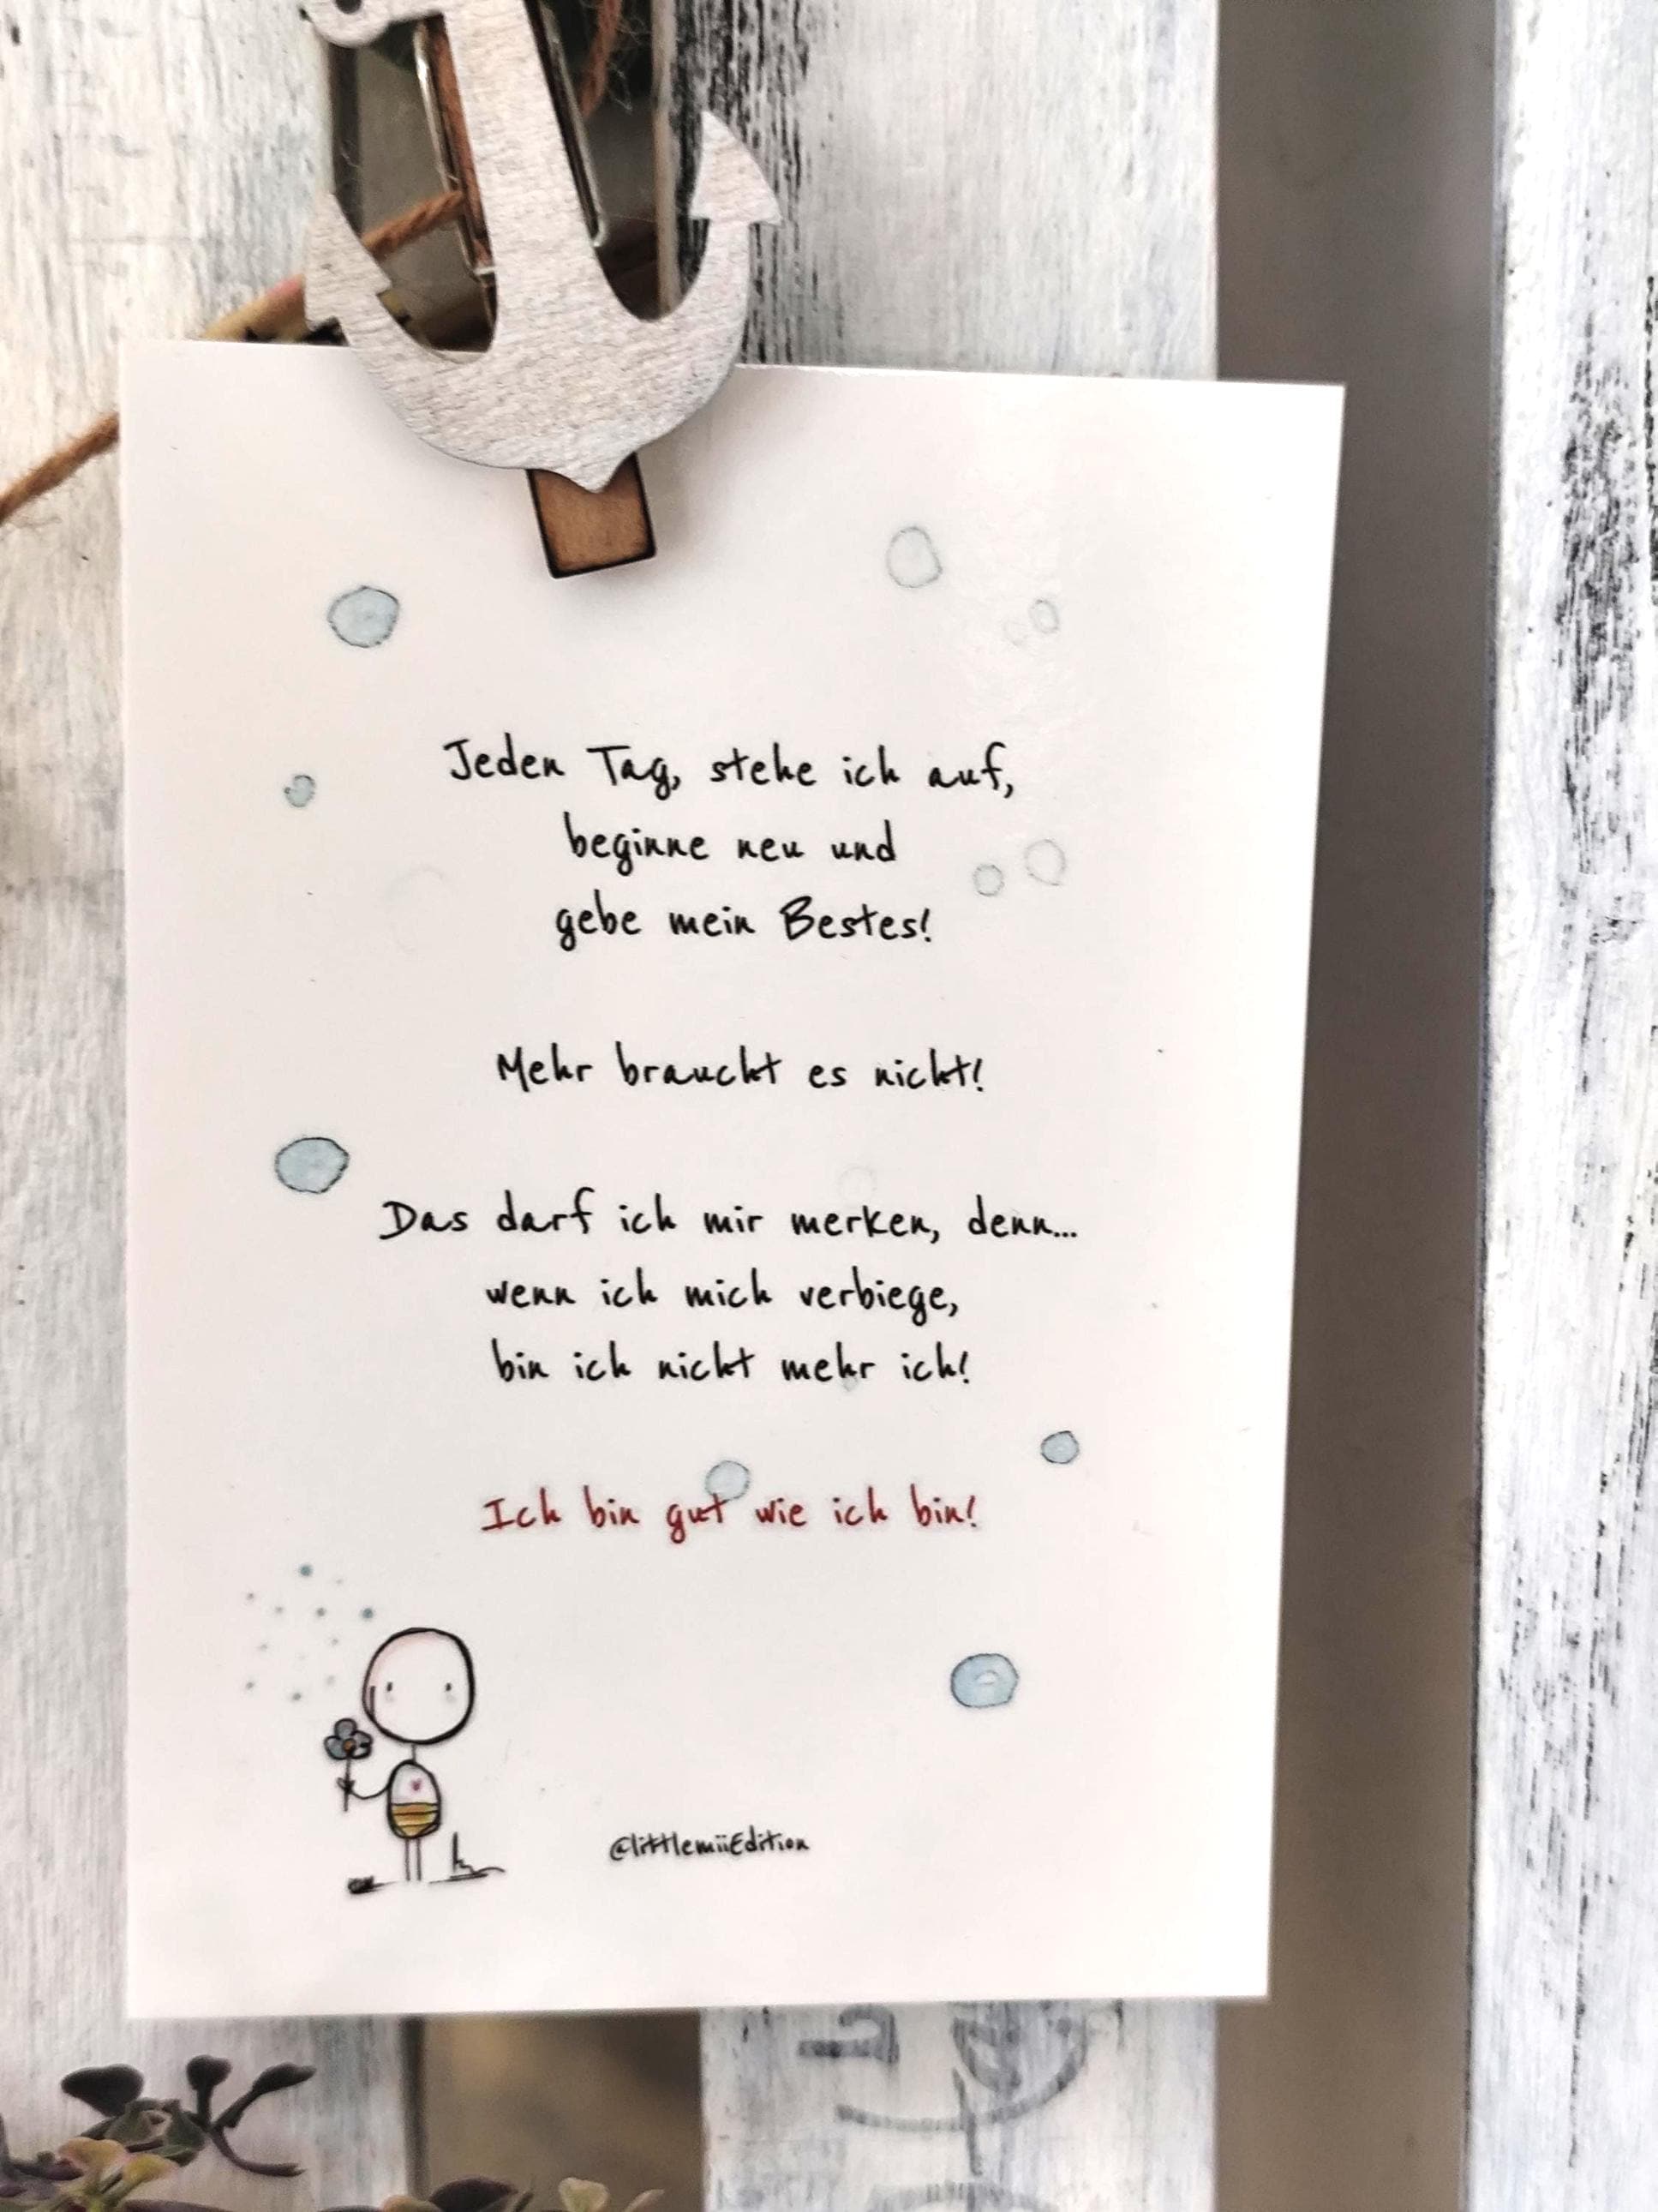 Jeden Tag, stehe ich auf,
beginne neu und
gebe mein Bestes!
Mehr braucht es nicht!
Das darf ich mir merken, denn...
wenn ich mich verbiege,
bin ich nicht mehr ich!
Ich bin gut wie ich bin!
@littlemiiEdition